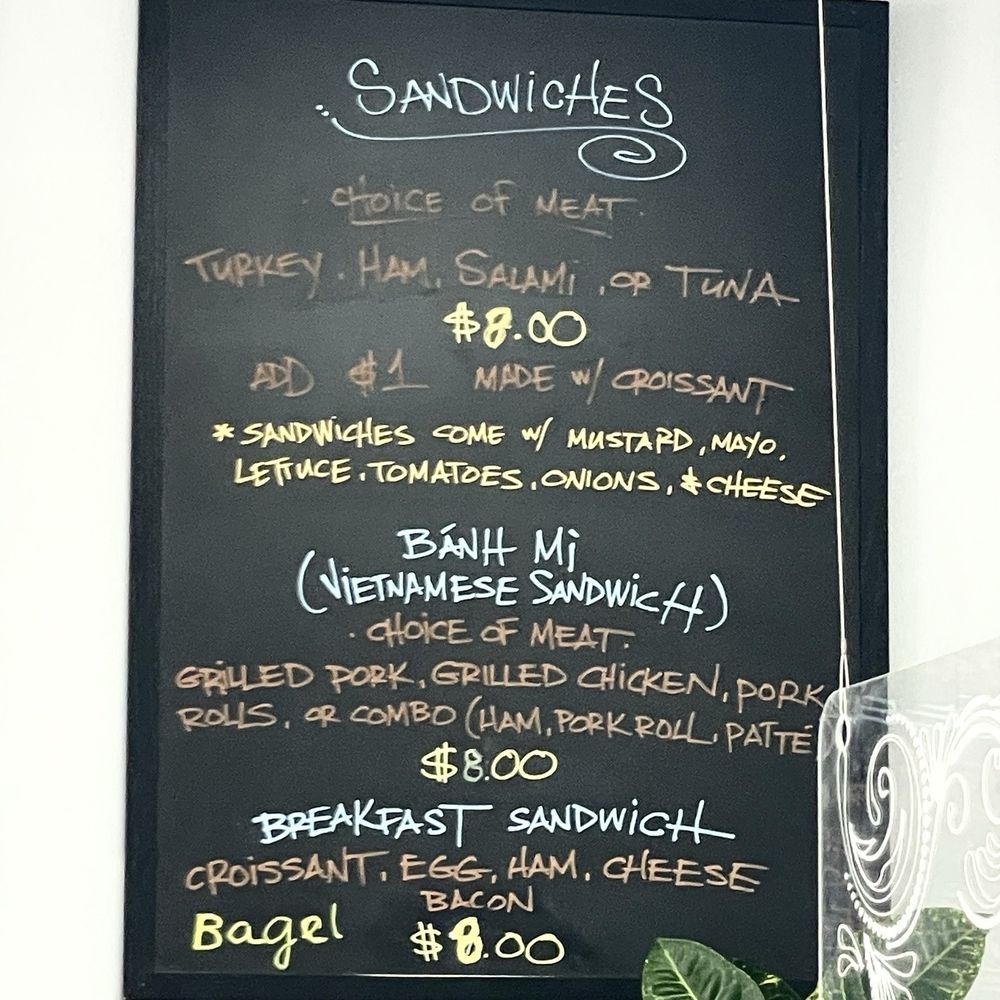 SANDWICHES
CHOICE OF MEAT.
TURKEY. HAM. SALAMI, OR TUNA
$8.00
ADD $1 MADE W/ CROISSANT
* SANDWICHES COME W/ MUSTARD, MAYO.
LETTUCE. TOMATOES. ONIONS, & CHEESE
BÁNH MỊ
(VIETNAMESE SANDWICH)
. CHOICE OF MEAT.
GRILLED PORK, GRILLED CHICKEN, PORK
ROLLS, OR COMBO (HAM, PORK ROLL, PATTÉ
$8.00
BREAKFAST SANDWICH
CROISSANT. EGG, HAM. CHEESE
BACON
Bagel $8.00